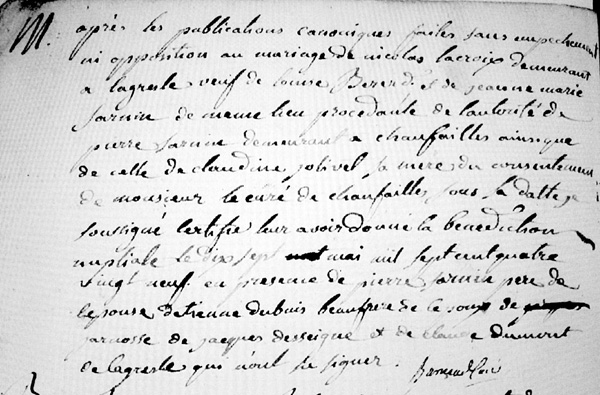 M. après les publications canoniques faites sans empechement
ni opposition au mariage de nicolas lacroix demeurant
a lagresle veuf de louise Berard et de jeanne marie
sarnin de meme lieu procedante de lautorité de
pierre sarnin demeurant a chaufailles ainsique
de celle de claudine jolivet sa mere du consentement
de monsieur le curé de chaufailles sous la datte je
soussigné certifie leur avoir donné la benediction
nuptiale le dix sept mai mil sept cent quatre
vingt neuf en presense de pierre sarnin pere de
lepouse detienne dubuis beaufrere de
jarnosse de jacques desseigne et de claude dumont
de lagresle qui n'ont se signer.